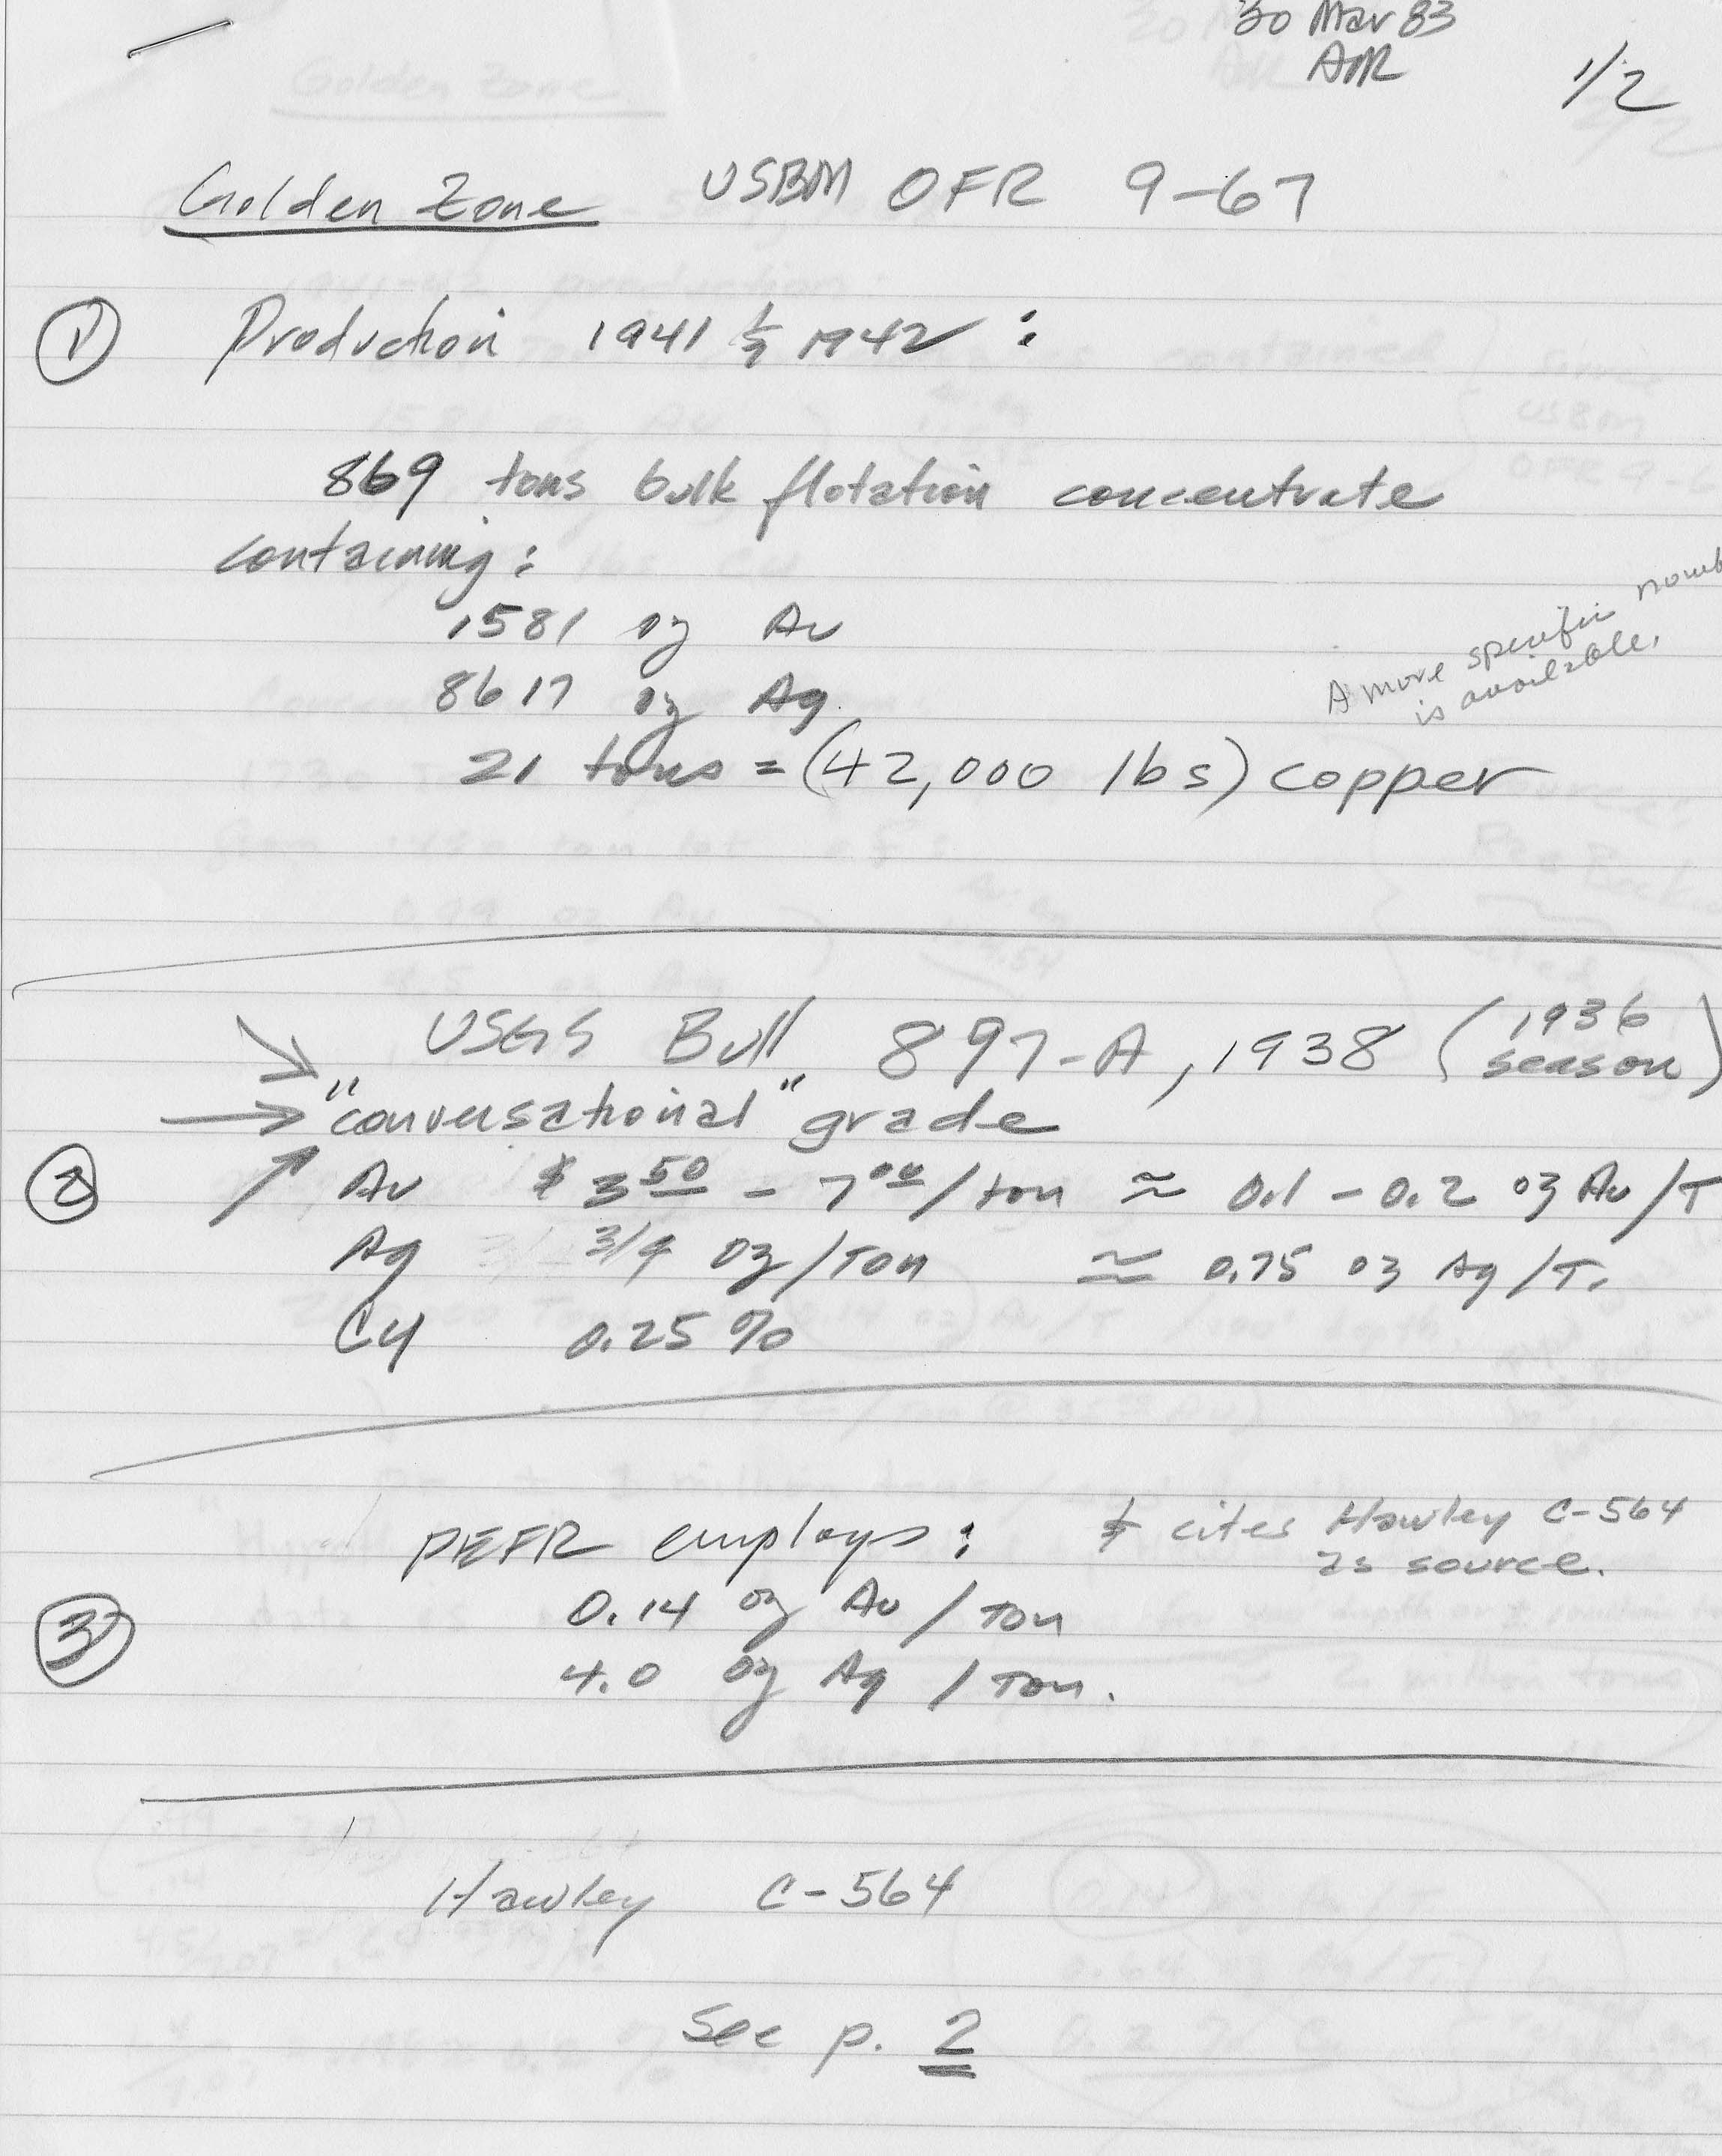 30 Mar 83
AMR
1/2
Golden Zone USBM OFR 9-67
① Production 1941 & 1942 :
869 tons bulk flotation concentrate
containing :
1581 oz Au
8617 oz Ag
21 tons = (42,000 lbs) copper
A more specific
is available.
USGS Bull 897-A, 1938 (1936 season)
"conversational" grade
② Au $3.50 - 7.00/ton ≈ 0.1 - 0.2 oz Au/T
Ag 3/4 oz/Ton ≈ 0.75 oz Ag/T.
Cu 0.25 %
PEFR employs : & cites Hawley C-564
as source.
③ 0.14 oz Au / Ton
4.0 oz Ag / Ton.
Hawley C-564
See p. 2